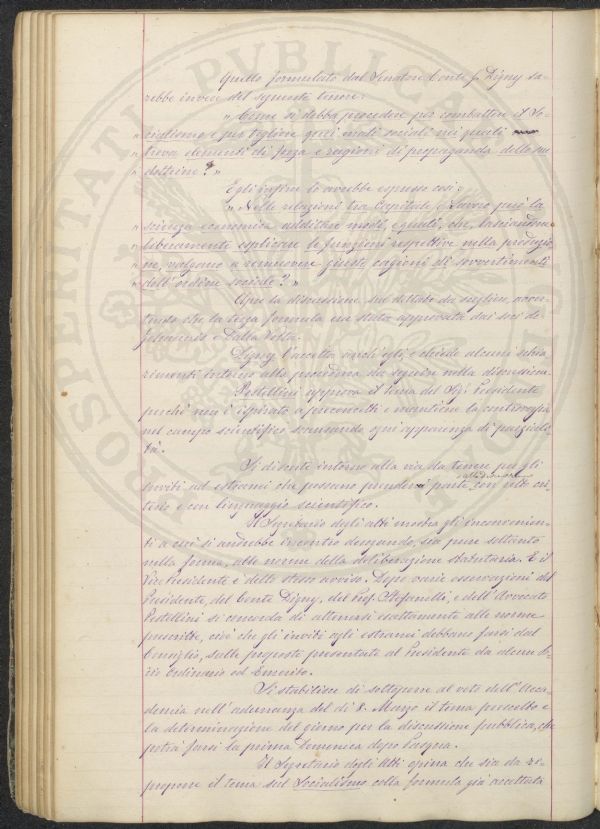 Quello formulato dal Senatore Conte De Digny sa-
rebbe invece del seguente tenore:
" Come si debba procedere per combattere il So-
" cialismo e per togliere quei mali sociali nei quali
" trova elementi di forza e ragioni di propaganda delle sue
" dottrine? "
Egli infine lo avrebbe espresso così:
" Nelle relazioni tra Capitale e Lavoro può la
" scienza economica additare modi, equità, che, lasciandone
" liberamente esplicare le funzioni respettive nella produzio-
" ne, valgono a rimuovere queste cagioni di sovvertimenti
" dell'ordine sociale? "
Apre la discussione sul dettato da scegliere, avver-
tendo che la terza formula era stata approvata dai soci de
Johannis e Dalla Volta.
Digny l'accetta anch'egli, e chiede alcuni schia
rimenti intorno alla procedura da seguire nella discussione
Pestellini approva il tema del Sigr Presidente
perchè non è ispirato a preconcetti e mantiene la controversia
nel campo scientifico scansando ogni apparenza di parziali-
tà.
Si discute intorno alla via da tenere per gli
inviti ad estranei che possano prendervi parte con retti cri-
terio e con linguaggio scientifico.
Il Segretario degli Atti mostra gli inconvenien-
ti a cui si andrebbe incontro derogando, sia pure soltanto
nella forma, alle norme della deliberazione statutaria. E il
Vice Presidente è dello stesso avviso. Dopo varie osservazioni del
Presidente, del Conte Digny, del Prof. Stefanelli, e dell'Avvocato
Pestellini si concorda di attenersi esattamente alle norme
prescritte, cioè che gli inviti agli estranei debbano farsi dal
Consiglio, sulle proposte presentate al Presidente da alcun So-
cio ordinario od Emerito.
Si stabilisce di sottoporre al voto dell'Acca-
demia nell'adunanza del dì 8. Marzo il tema prescelto e
la determinazione del giorno per la discussione pubblica, che
potrà farsi la prima Domenica dopo Pasqua.
Il Segretario degli Atti opina che sia da ri-
proporre il tema sul Socialismo colla formula già accettata
PROSPERITATI PVBLICAE